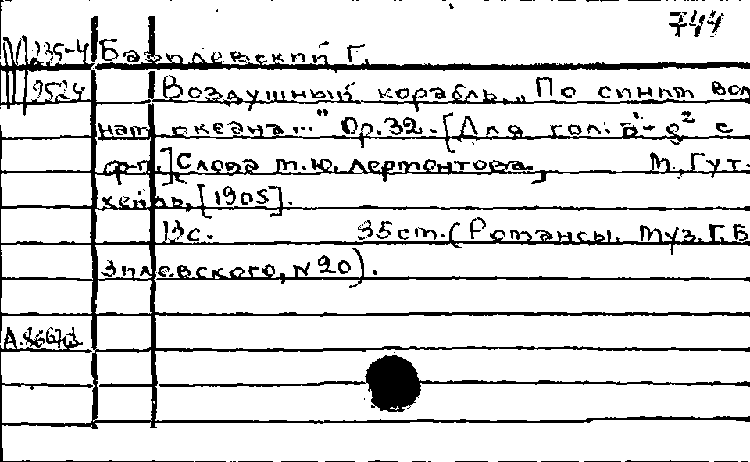 744
М 235-4 Базилевский, Г.
9524 Воздушный корабль. „По синим вол
нам океана..." Ор. 32. [Для гол. d¹-g² с
ф-п.] Слова М.Ю. Лермонтова. М., Гут-
хейль, [1905].
13с. 35см. (Романсы. Муз. Г. Ба
зилевского, № 20).